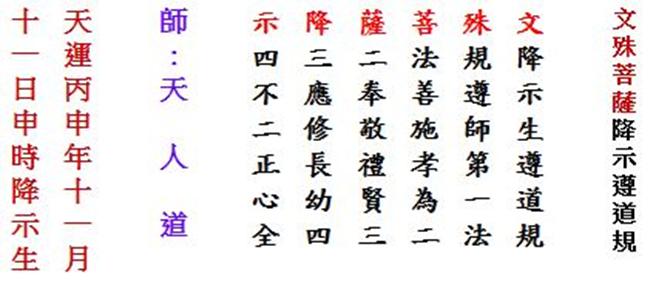 文殊菩薩降示遵道規
文降示生遵道規
殊規遵師第一法
菩法善施孝為二
薩二奉敬禮賢三
降三應修長幼四
示四不二正心全
師：天人道
天運丙申年十一月
十一日申時降示生